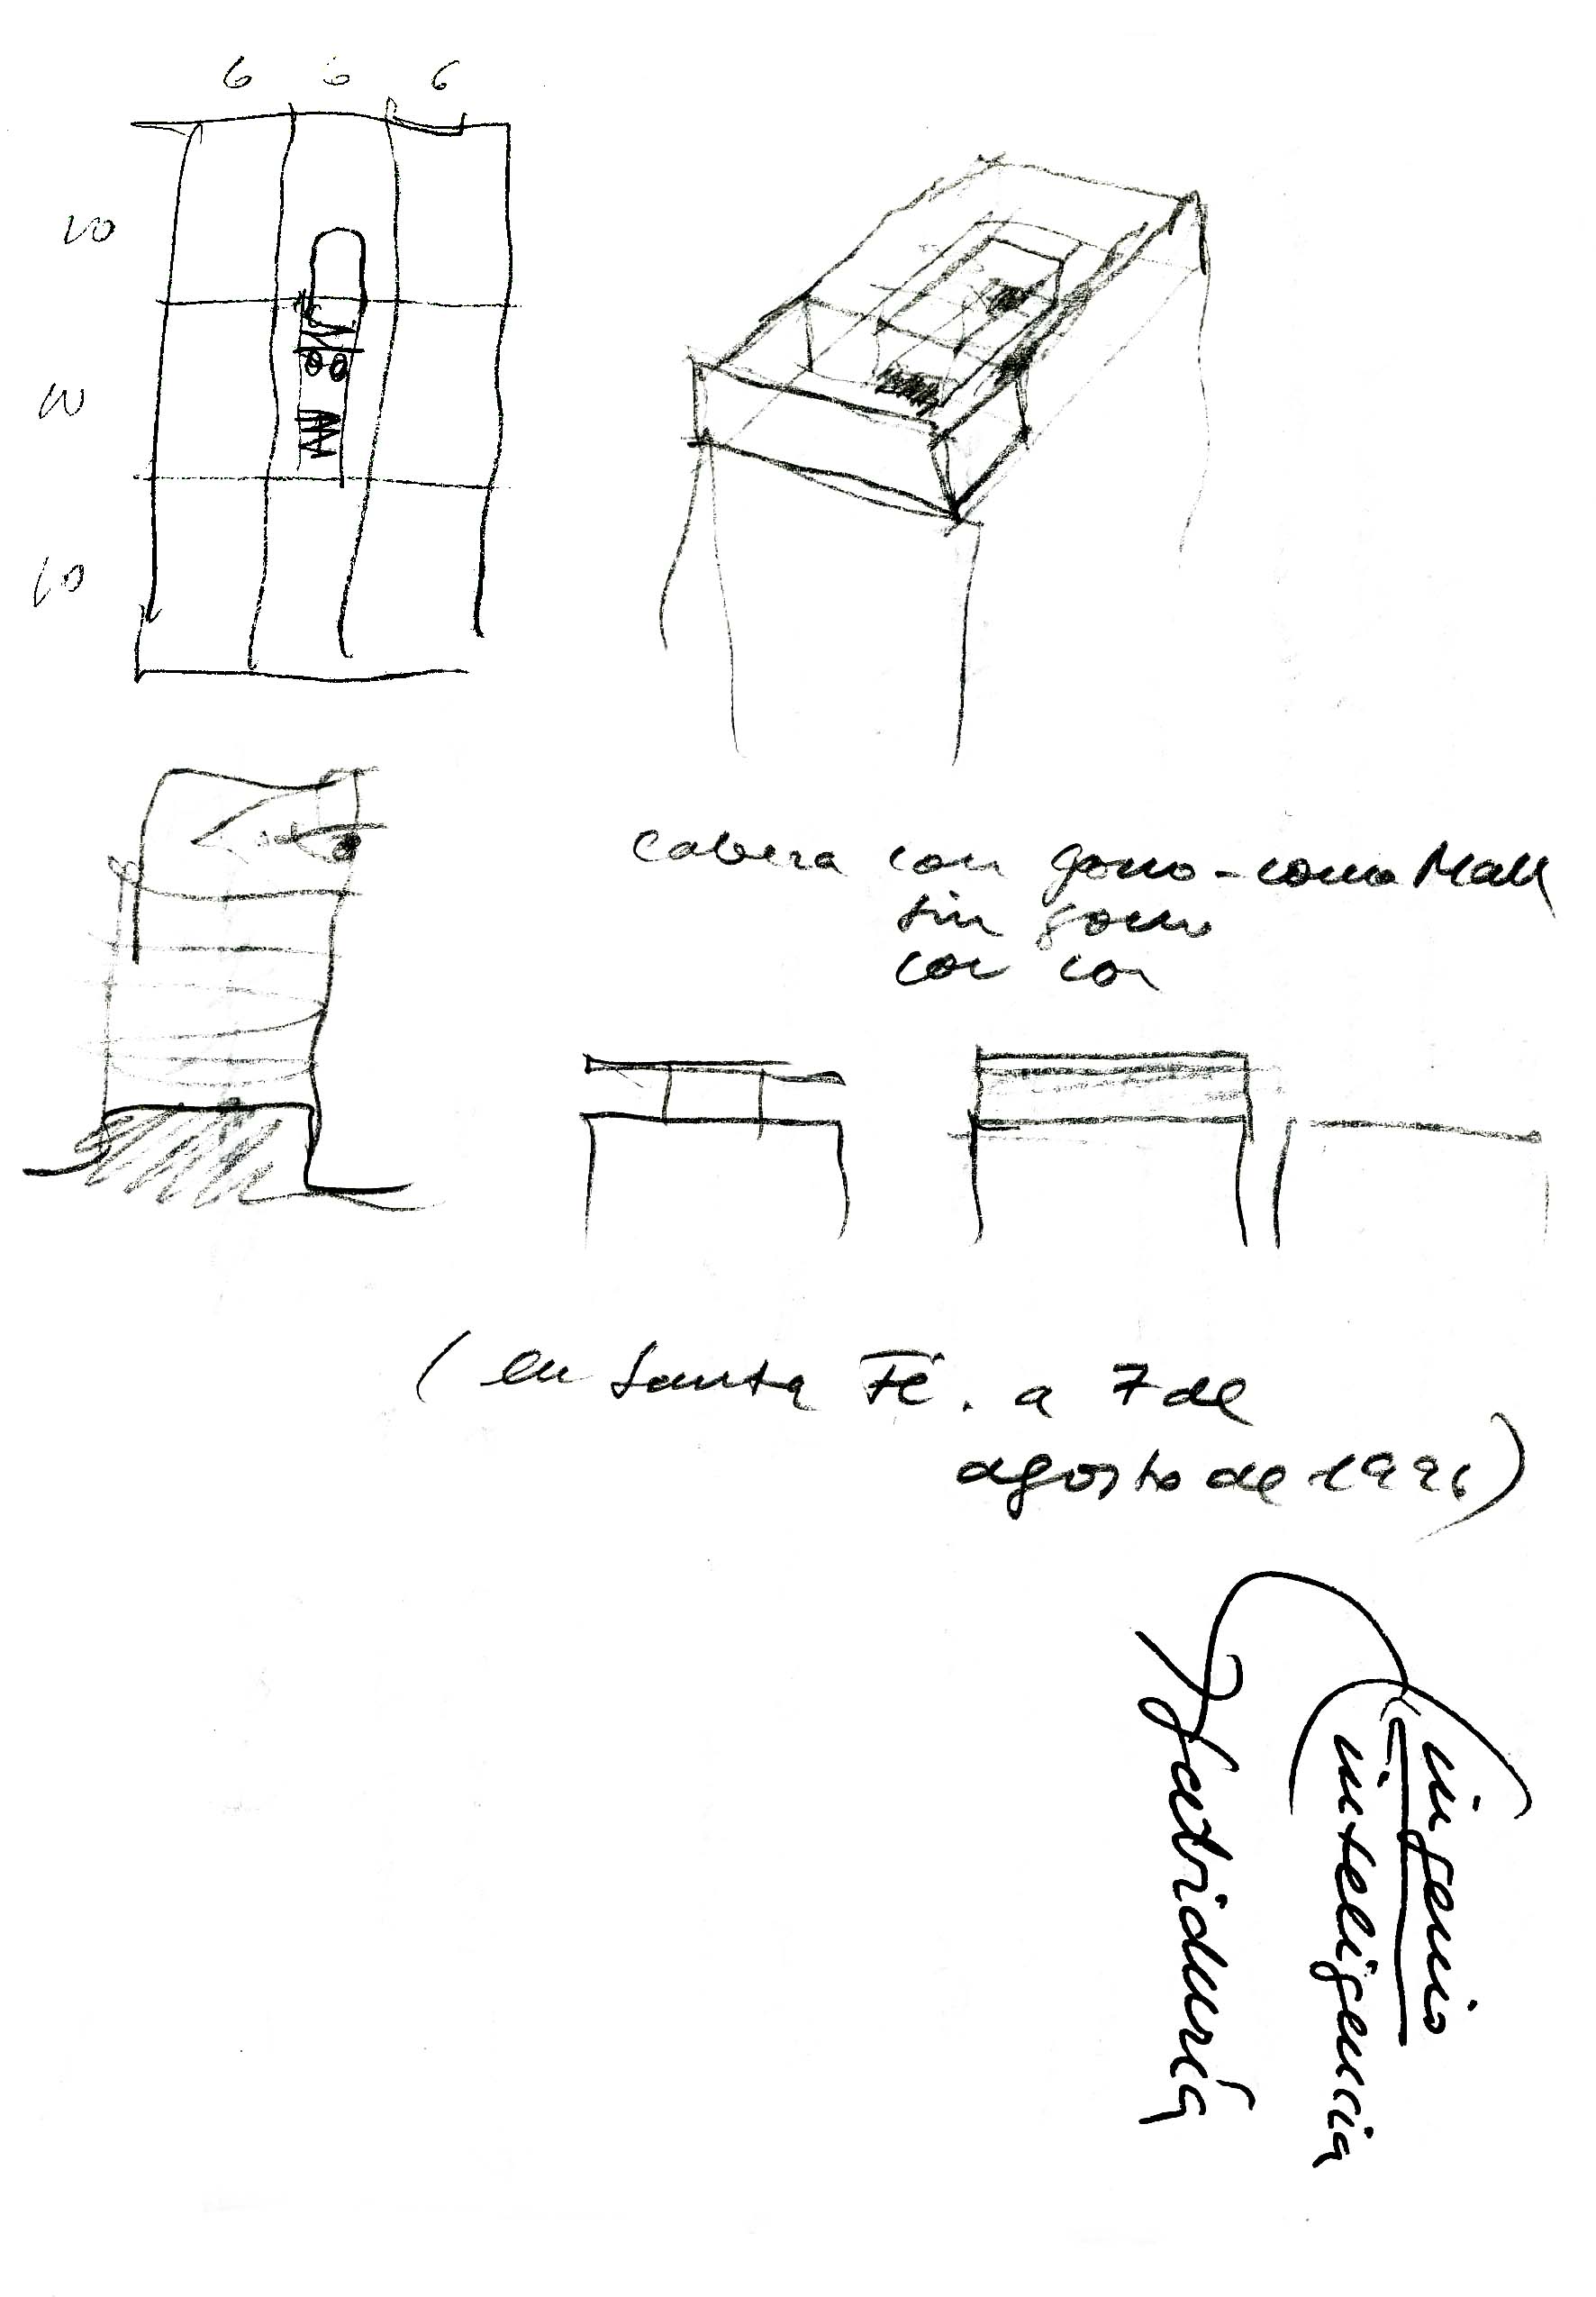 6 6 6
10
10
10
cabeza con gorro - como Mall
sin gorro
con con
(en Santa Fé. a 7 de
agosto de 1996)
ingenio
inteligencia
sabiduría